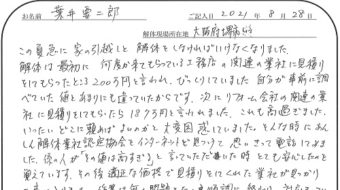 お名前 ご記入日 2021年8月28日
解体現場所在地 大阪府
この夏急に家の引越しと解体をしなければいけなくなりました。
解体は最初に何度か来てもらっている工務店の関連の業社に見積り
をしてもらったところ200万円と言われ、びっくりしていました。自分が事前に調
べていた値とあまりにも違っていたからです。次にリフォーム会社の関連の業
社に見積りをしてもらったら187万と言われました。これも高過ぎました。
いったいどこに頼めばよいのかと大変困っていました。そんな時にあん
しん解体業社認定協会をインターネットで見つけて思いきって電話してみま
した。係の人が「その値は高すぎる」と言っていただいた時とても安心したのを
覚えています。その後適正な価格で見積りをしてくれた業社が見つかり